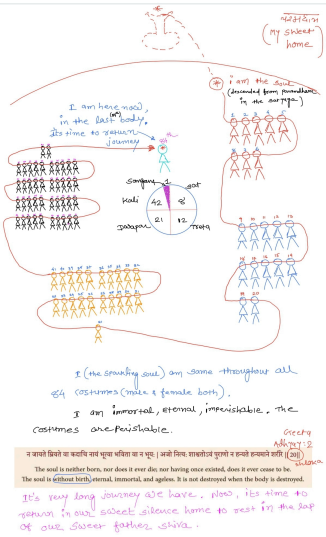 (My sweet
home)
"i am the soul
(descended from paramdham
in the satyuga)
1 2 3 4 5
6 7 8
I am here now,
in the last body. (84th)
its time to return
journey
84th
Sangam 1 Sat
Kali 42 8
21 12
Dwapar Treta
9 10 11 12 13
14 15 16 17 18
19 20
I (the sparkling soul) am same throughout all
84 costumes (male & female both).
I am immortal, eternal, imperishable. The
costumes are perishable.
Geeta
Adhyay: 2
न जायते म्रियते वा कदाचि नायं भूत्वा भविता वा न भूयः | अजो नित्यः शाश्वतोऽयं पुराणो न हन्यते हन्यमाने शरीरे ||20||
shloka
The soul is neither born, nor does it ever die; nor having once existed, does it ever cease to be.
The soul is without birth, eternal, immortal, and ageless. It is not destroyed when the body is destroyed.
It's very long journey we have. Now, its time to
return in our sweet silence home to rest in the lap
of our sweet father shiva.